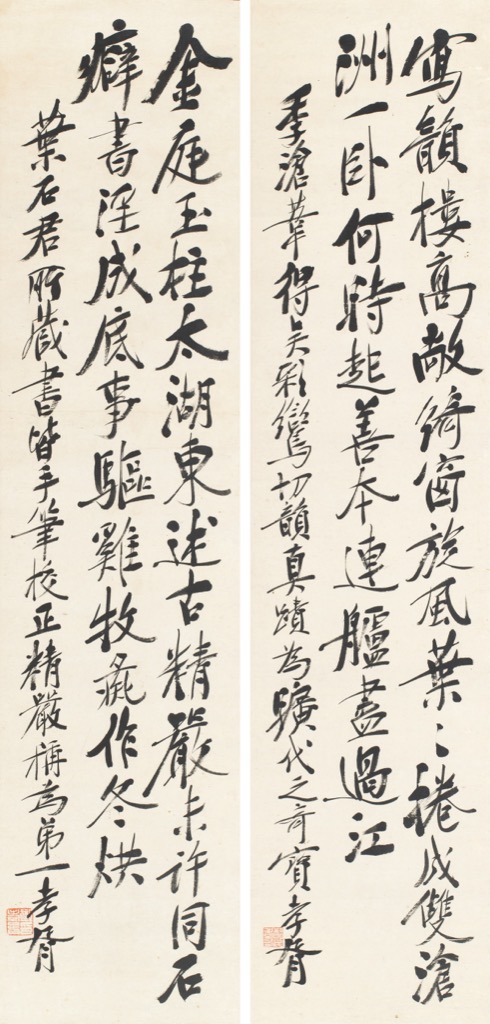 寫韻樓高敞綺窗旋風葉〻捲成雙滄
洲一卧何時起善本連艫盡過江
季滄葦得吳彩鸞切韻真蹟為曠代之奇寶孝胥
金庭玉柱太湖東述古精嚴未許同石
癖書淫成底事驅雞牧㲋作冬烘
葉石君所藏書皆手筆校正精嚴稱為第一孝胥